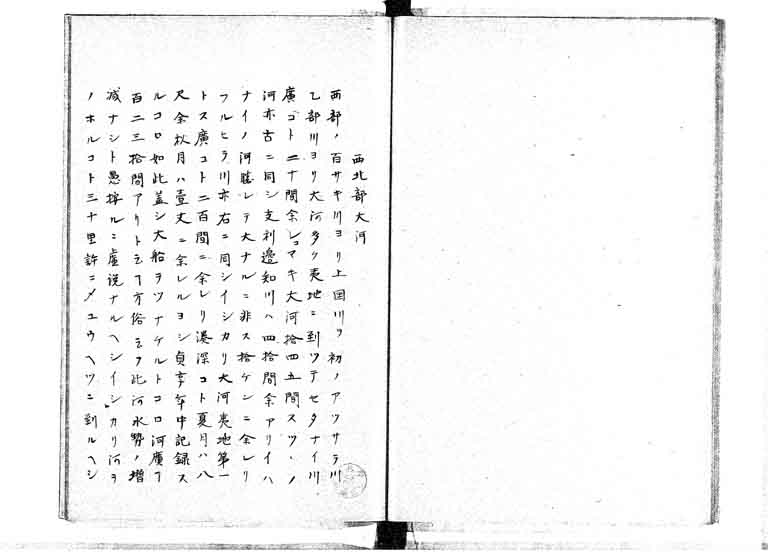 西北部大河
西部ノ百サキリヨリ上国川ヲ初ノアツサラ川
乙部川ヨリ大河多ク夷地ニ到ツテセタナイ川
廣コト二十間余レコマキ大河拾四五間スツヽノ
河亦古ニ同シ支利邊知川ハ四拾間余アリイハ
ナイノ河勝レテ大ナルニ非ス拾ケンニ余レリ
フルヒラ川亦右ニ同シイシカリ大河夷地第一
トス廣コト二百間ニ余レリ湊深コト夏月ハ八
尺余秋月ハ壹丈ニ余レルヨシ貞享年中記録ス
ルコロ如此蓋シ大船ヲツナケルトコロ河廣サ
百二三拾間アリト云方俗云ヲ此河水勢ノ増
减ナシト愚按ルニ虚说ナルヘシイシカリ河ヲ
ノホルコト三十里許ニメユウヘツニ到ルヘシ